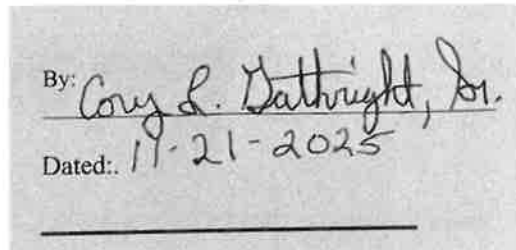 By: Cory L. Gathright, Sr.
Dated:. 11-21-2025